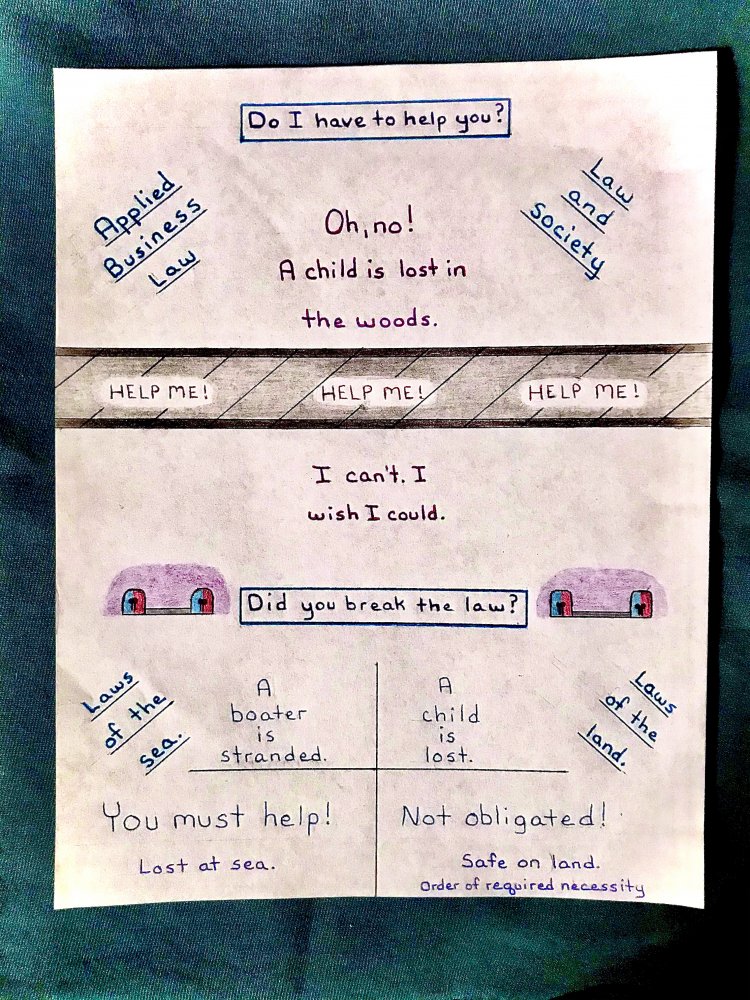 Do I have to help you?
Applied
Business
Law
Law
and
Society
Oh, no!
A child is lost in
the woods.
HELP ME! HELP ME! HELP ME!
I can't. I
wish I could.
Did you break the law?
Laws
of the
sea.
A
boater
is
stranded.
A
child
is
lost.
Laws
of the
land.
You must help!
Lost at sea.
Not obligated!
Safe on land.
Order of required necessity